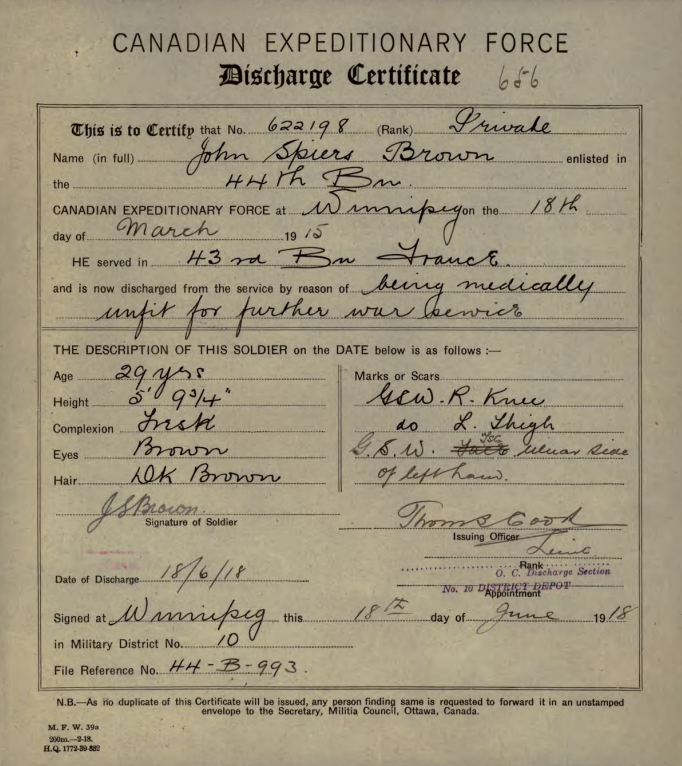 CANADIAN EXPEDITIONARY FORCE
Discharge Certificate 686
This is to Certify that No. 622198 (Rank) Private
Name (in full) John Spiers Brown enlisted in
the 44th Bn.
CANADIAN EXPEDITIONARY FORCE at Winnipeg on the 18th
day of March 19 15
HE served in 43rd Bn France.
and is now discharged from the service by reason of being medically
unfit for further war service
THE DESCRIPTION OF THIS SOLDIER on the DATE below is as follows :—
Age 29 yrs
Height 5' 9 3/4"
Complexion Fresh
Eyes Brown
Hair Dk Brown
Marks or Scars
GSW. R. Knee
do L. Thigh
G.S.W. ulnar side
of left hand.
JSBrown.
Signature of Soldier
Thomas Cook
Issuing Officer
Lieut.
Rank
O. C. Discharge Section
No. 10 DISTRICT DEPOT
Appointment
Date of Discharge 18/6/18
Signed at Winnipeg this 18th day of June 19 18
in Military District No. 10
File Reference No. 44-B-993.
N.B.—As no duplicate of this Certificate will be issued, any person finding same is requested to forward it in an unstamped
envelope to the Secretary, Militia Council, Ottawa, Canada.
M. F. W. 39a
200m.—2-18.
H.Q. 1772-39-882